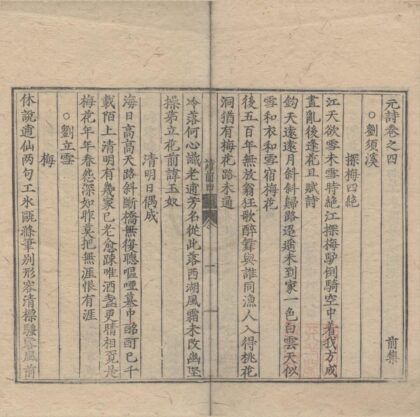 元詩卷之四
前集
○劉須溪
探梅四絶
江天欲雪未雪時絶江探梅驢倒騎空中着我方成
畫亂後逢花且賦詩
鈞天遠遠月斜斜歸路遥遥未到家一色白雲天似
雪和衣和雪宿梅花
後五百年無放翁狂歌醉舞與誰同漁人入得桃花
洞猶有梅花路未通
冷落何心識老逋芳名從此落西湖風霜未改幽堅
操茅立花前諱玉奴
清明日偶成
海日高高天路斜斷橋無復聽啞墓中酩酊已千
載陌上清明有幾家已老愈踈唯酒盞更晴相見是
梅花年年春恨深如昨莫把無涯恨有涯
○劉立雪
梅
休說逋仙两句工氷甌滌筆别形容清標驗
風前